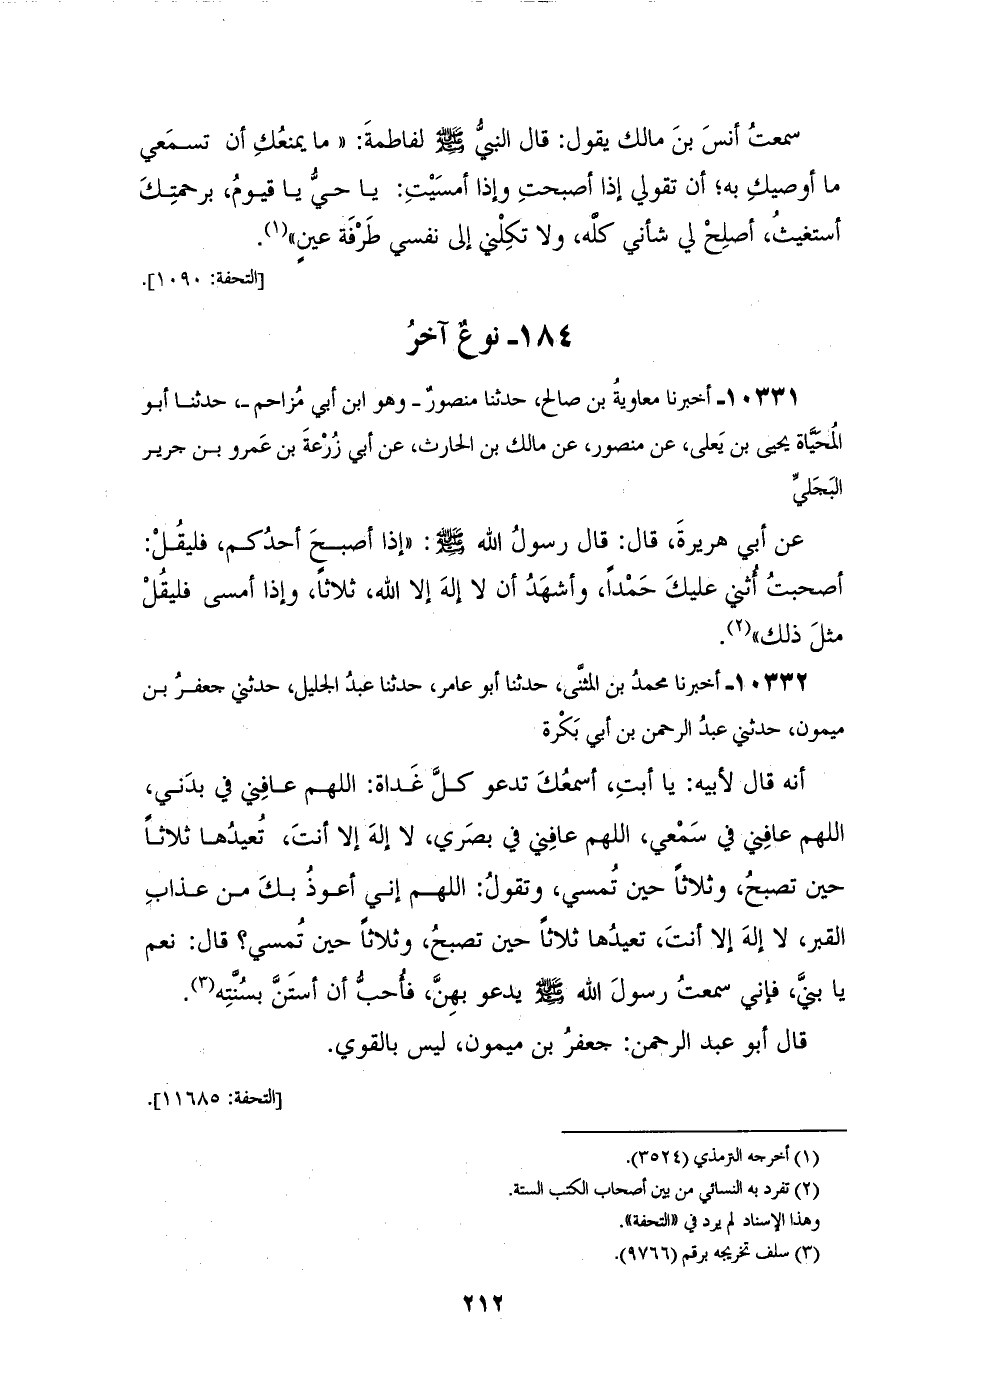 سمعتُ أنسَ بنَ مالك يقول: قال النبيُّ ﷺ لفاطمةَ: « ما يمنعُكِ أن تسـمَعي
ما أوصيكِ به؛ أن تقولي إذا أصبحتِ وإذا أمسَيْتِ: يـا حـيُّ يـا قيـومُ، برحمتِـكَ
أستغيثُ، أصلِحْ لي شأني كلَّه، ولا تكِلْني إلى نفسي طَرْفَة عينٍ»(١).
[التحفة: ١٠٩٠].
١٨٤ـ نوعٌ آخرُ
١٠٣٣١ـ أخبرنا معاويةُ بن صالح، حدثنا منصورٌ ـ وهو ابن أبي مُزاحم ـ، حدثنـا أبـو
المُحَيَّاة يحيى بن يَعلى، عن منصور، عن مالك بن الحارث، عن أبي زُرْعةَ بن عَمرو بـن جريـر
البَجَليِّ
عن أبي هريرةَ، قال: قال رسولُ الله ﷺ: «إذا أصبـحَ أحدُكـم، فليقُـلْ:
أصحبتُ أُثني عليكَ حَمْداً، وأشهَدُ أن لا إلهَ إلا الله، ثلاثاً، وإذا أمسى فليقُلْ
مثلَ ذلك»(٢).
١٠٣٣٢ـ أخبرنا محمدُ بن المثنَّى، حدثنا أبو عامر، حدثنا عبدُ الجليل، حدثني جعفـرُ بـن
ميمون، حدثني عبدُ الرحمن بن أبي بَكْرة
أنه قال لأبيه: يا أبتِ، أسمعُكَ تدعو كـلَّ غَـداة: اللهـم عـافِني في بدَني،
اللهم عافِني في سَمْعي، اللهم عافِني في بصَري، لا إلهَ إلا أنتَ، تُعيدُهـا ثلاثـاً
حين تصبحُ، وثلاثاً حين تُمسي، وتقولُ: اللهـم إنـي أعـوذُ بـكَ مـن عـذابِ
القبر، لا إلهَ إلا أنتَ، تعيدُها ثلاثاً حين تصبحُ، وثلاثاً حين تُمسي؟ قال: نعم
يا بنيَّ، فإني سمعتُ رسولَ الله ﷺ يدعو بهِنَّ، فأُحبُّ أن أستَنَّ بسُنَّتِه(٣).
قال أبو عبد الرحمن: جعفرُ بن ميمون، ليس بالقوي.
[التحفة: ١١٦٨٥].
(١) أخرجه الترمذي (٣٥٢٤).
(٢) تفرد به النسائي من بين أصحاب الكتب الستة.
وهذا الإسناد لم يرد في «التحفة».
(٣) سلف تخريجه برقم (٩٧٦٦).
٢١٢